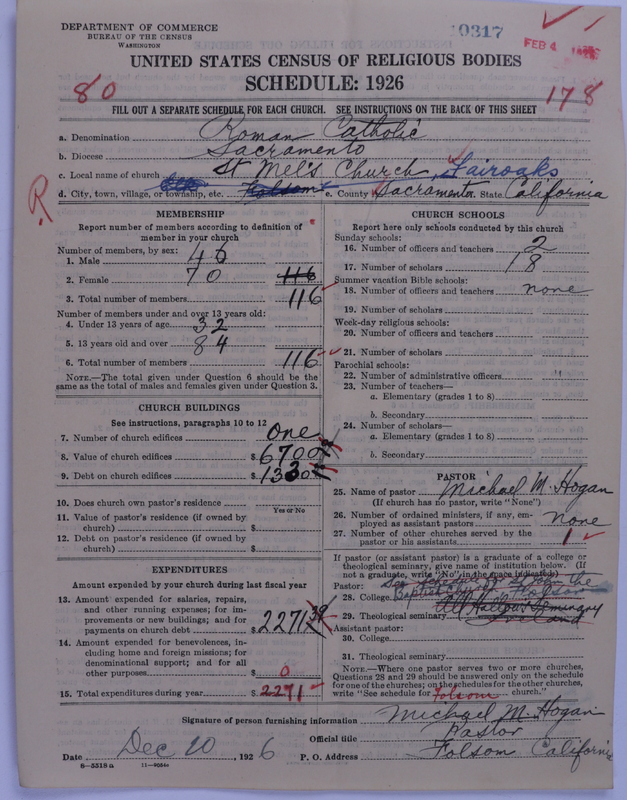 DEPARTMENT OF COMMERCE
BUREAU OF THE CENSUS
WASHINGTON
10317
FEB 4
UNITED STATES CENSUS OF RELIGIOUS BODIES
SCHEDULE: 1926
80
178
FILL OUT A SEPARATE SCHEDULE FOR EACH CHURCH. SEE INSTRUCTIONS ON THE BACK OF THIS SHEET
a. Denomination Roman Catholic
b. Diocese Sacramento
c. Local name of church St Mel's Church, Fairoaks
d. City, town, village, or township, etc. Folsom e. County Sacramento State California
R
MEMBERSHIP
Report number of members according to definition of member in your church
Number of members, by sex:
1. Male 46
2. Female 70 116
3. Total number of members 116
Number of members under and over 13 years old:
4. Under 13 years of age 32
5. 13 years old and over 84
6. Total number of members 116
NOTE.—The total given under Question 6 should be the same as the total of males and females given under Question 3.
CHURCH BUILDINGS
See instructions, paragraphs 10 to 12
7. Number of church edifices One
8. Value of church edifices $ 6700
9. Debt on church edifices $ 1330
10. Does church own pastor's residence
Yes or No
11. Value of pastor's residence (if owned by church) $
12. Debt on pastor's residence (if owned by church) $
EXPENDITURES
Amount expended by your church during last fiscal year
13. Amount expended for salaries, repairs, and other running expenses; for improvements or new buildings; and for payments on church debt $ 2271
14. Amount expended for benevolences, including home and foreign missions; for denominational support; and for all other purposes $ 0
15. Total expenditures during year $ 2271
CHURCH SCHOOLS
Report here only schools conducted by this church
Sunday schools:
16. Number of officers and teachers 2
17. Number of scholars 18
Summer vacation Bible schools:
18. Number of officers and teachers none
19. Number of scholars
Week-day religious schools:
20. Number of officers and teachers
21. Number of scholars
Parochial schools:
22. Number of administrative officers "
23. Number of teachers—
a. Elementary (grades 1 to 8)
b. Secondary
24. Number of scholars—
a. Elementary (grades 1 to 8)
b. Secondary
PASTOR
25. Name of pastor Michael M. Hogan
(If church has no pastor, write "None")
26. Number of ordained ministers, if any, employed as assistant pastors none
27. Number of other churches served by the pastor or his assistants 1
If pastor (or assistant pastor) is a graduate of a college or theological seminary, give name of institution below. (If not a graduate, write "No" in the space indicated)
Pastor: See St John the
28. College Baptist Church Folsom
29. Theological seminary All Hallows Seminary
Ireland
Assistant pastor:
30. College
31. Theological seminary
NOTE.—Where one pastor serves two or more churches, Questions 28 and 29 should be answered only on the schedule for one of the churches; on the schedules for the other churches, write "See schedule for Folsom church."
Signature of person furnishing information Michael M. Hogan
Official title Pastor
Date Dec 20, 1926 P. O. Address Folsom California
8—5518 a 11—9055